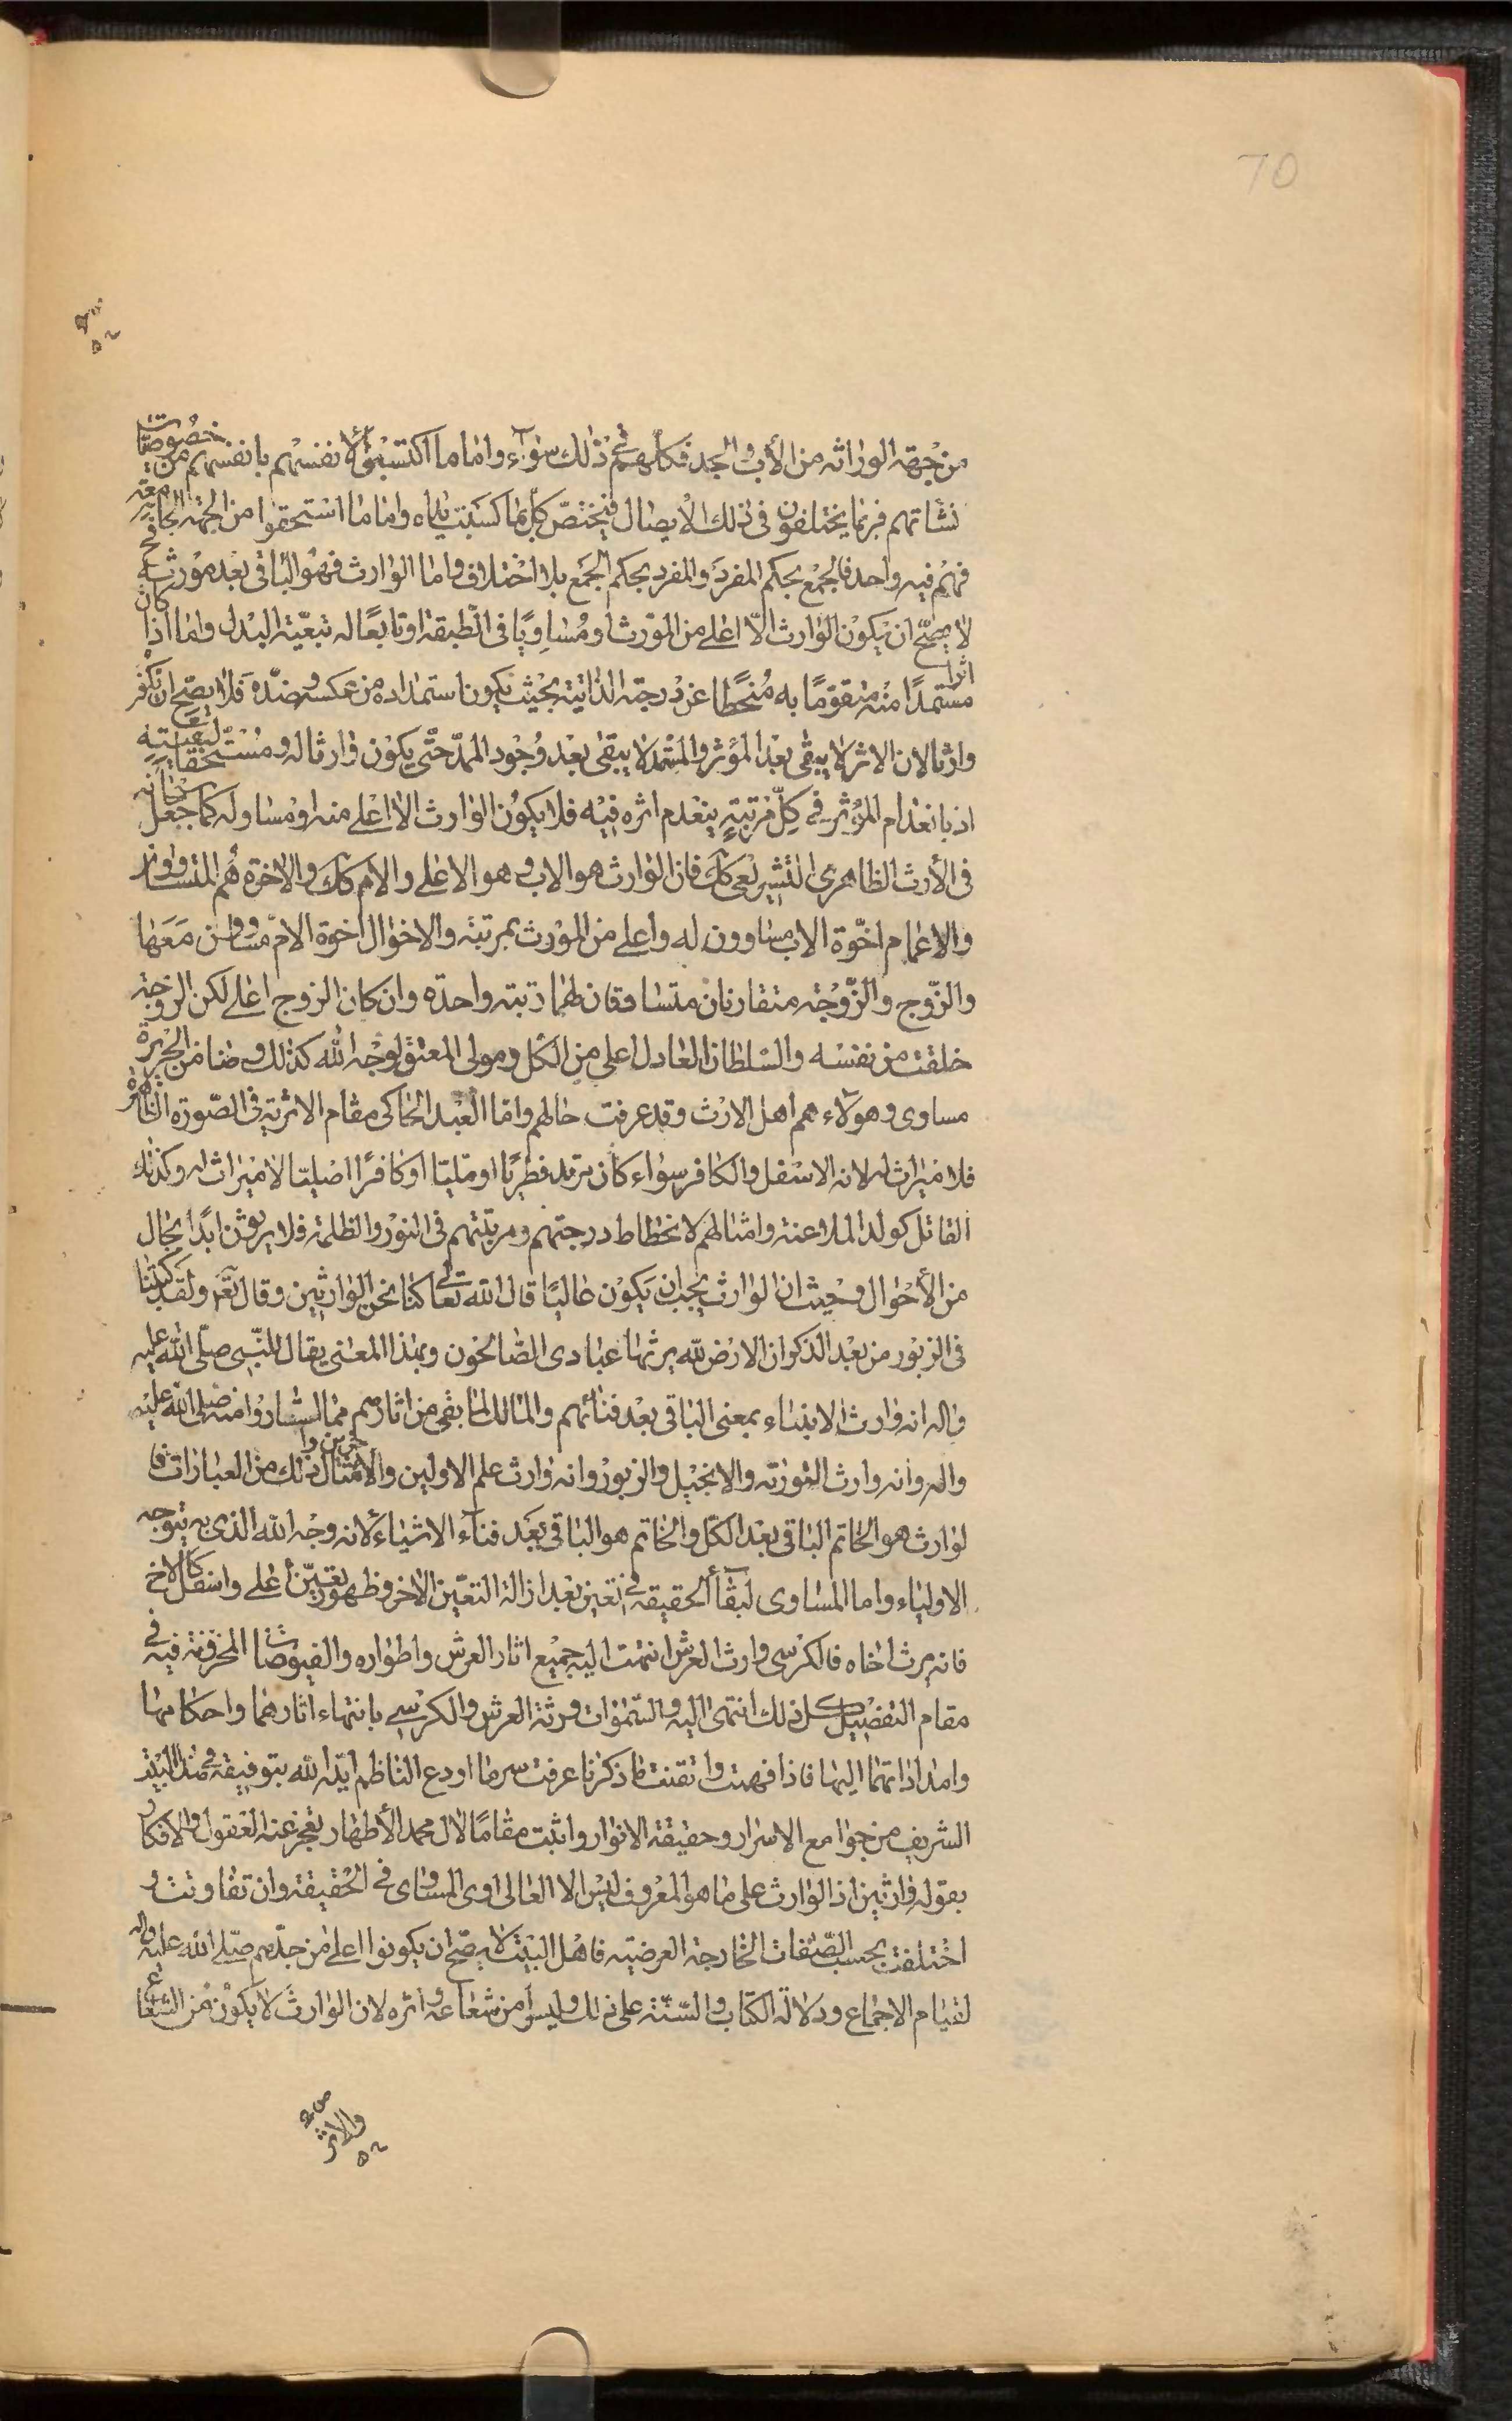 70
من جهة الوراثة من الأب والجد فكلهم في ذلك سواء واما ما اكتسبوا لا نفسهم بانفسهم من خصوصيات
نشأتهم فربما يختلفون في ذلك الايصال فيختص كل بما كسبت يداه واما ما استحقوا من الجهة الجامعة
فهم فيه واحد فالجمع بحكم المفرد والمفرد بحكم الجمع بلا اختلاف واما الوارث فهو الباقي بعد مورثه
لا يصح ان يكون الوارث الا اعلى من المورث او مساويا في الطبقة او تابعا له تبعية البدل واما اذا كان
اثرا مستمدا منه متقوما به منحطا عن درجته الذاتية بحيث يكون استمداده من عكسه وضده فلا يصح ان يكون
وارثا لان الاثر لا يبقى بعد المؤثر والمستمد لا يبقى بعد وجود الممد حتى يكون وارثا له ومستحقا
اذ بانعدام المؤثر في كل مرتبة ينعدم اثره فيه فلا يكون الوارث الا اعلى منه او مساو له كما جعل سبحانه
في الأرث الظاهري التشريعي كك فان الوارث هو الاب وهو الاعلى والام كك والاخوة هم المتساوون
والاعمام اخوة الاب مساوون له واعلى من المورث بمرتبة والاخوال اخوة الام مساوون معها
والزوج والزوجة متقارنان متساوقان لهما رتبة واحدة وان كان الزوج اعلى لكن الزوجة
خلقت من نفسه والسلطان العادل اعلى من الكل ومولى المعتق لوجه الله كذلك وضامن الجريرة
مساوى وهولاء هم اهل الارث وقد عرفت حالهم واما العبد الحاكى مقام الاثرية في الصورة الظاهرة
فلا ميراث له لانه الاسفل والكافر سواء كان مرتد فطريا او مليا او كافرا اصليا لا ميراث له وكذلك
القاتل كولد الملاعنة وامثالهم لانحطاط درجتهم ومرتبتهم في النور والظلمة فلا يرثون ابدا بحال
من الأحوال وحيث ان الوارث يجب ان يكون عاليا قال الله تعالى كنا نحن الوارثين وقال تع ولقد كتبنا
في الزبور من بعد الذكر ان الارض لله يرثها عبادى الصالحون وبهذا المعنى يقال للنبي صلى الله عليه
واله انه وارث الانبياء بمعنى الباقى بعد فنائهم والمالك لما بقى من اثارهم مما استناروا منه صلى الله عليه
واله وانه وارث التورية والانجيل والزبور وانه وارث علم الاولين والآخرين وامثال ذلك من العبارات فا
لوارث هو الخاتم الباقى بعد الكل والخاتم هو الباقى بعد فناء الاشياء لانه وجه الله الذى به يتوجه
الاولياء واما المساوى لبقاء الحقيقة في تعين بعد ازالة التعين الاخر وظهور تعين أعلى واسفل كالاخ
فانه يرث اخاه فالكرسى وارث العرش انتهت اليه جميع اثار العرش واطواره والفيوضات المخزونة فيه في
مقام التفصيل كل ذلك انتهى اليه والسموات ورثة العرش والكرسي بانتهاء اثارهما واحكامهما
وامداداتهما اليها فاذا فهمت واتقنت ما ذكرنا عرفت سر ما اودع الناظم ايده الله بتوفيقه في هذا البيت
الشريف من جوامع الاسرار وحقيقة الانوار واثبت مقاما لال محمد الأطهار تعجز عنه العقول والافكار
بقوله وارثين اذ الوارث على ما هو المعروف ليس الا العالى او المساوى في الحقيقة وان تفاوتت و
اختلفت بحسب الصفات الخارجة العرضية فاهل البيت لا يصح ان يكونوا اعلى من جدهم صلى الله عليه واله
لقيام الاجماع ودلالة الكتاب والسنة على ذلك وليسوا من شعاعه واثره لان الوارث لا يكون من الشعاع
والاثر